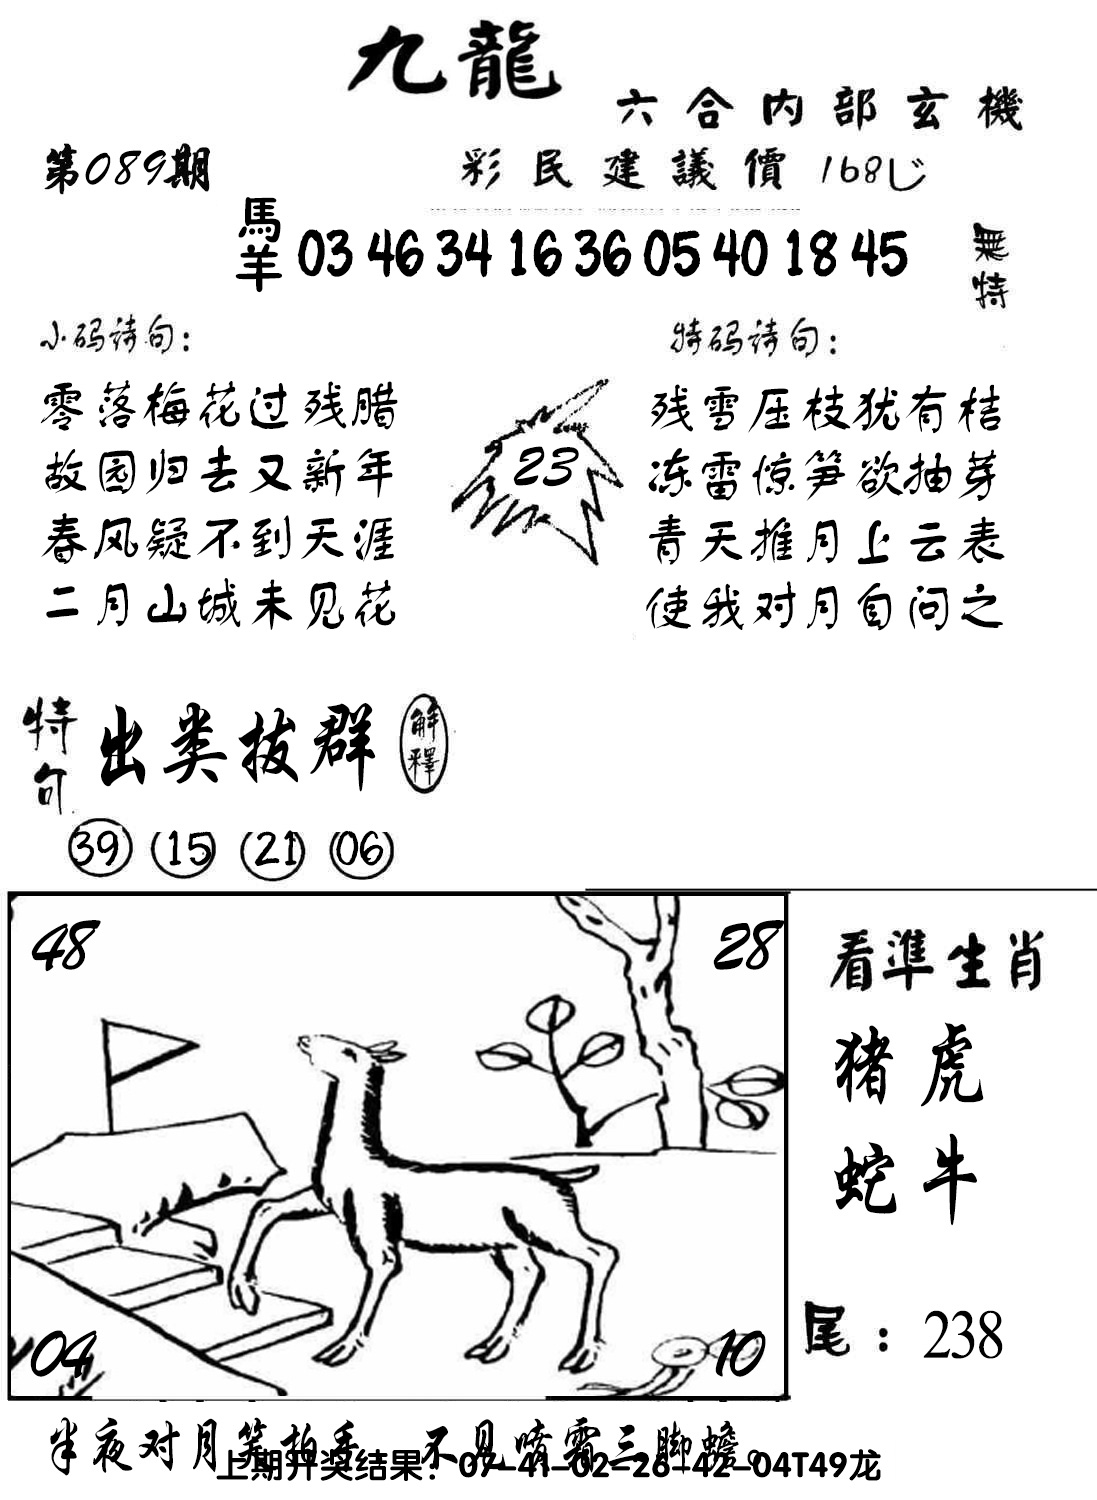 九龍
六合内部玄機
第089期
彩民建議價 168
馬羊 03 46 34 16 36 05 40 18 45 無特
小码诗句：
零落梅花过残腊
故园归去又新年
春风疑不到天涯
二月山城未见花
23
特码诗句：
残雪压枝犹有桔
冻雷惊笋欲抽芽
青天推月上云表
使我对月自问之
特句 出类拔群 解釋
39 15 21 06
48 28
04 10
看準生肖
猪虎
蛇牛
尾：238
半夜对月笑拍手 不见喷霜三脚蟾。
上期开奖结果：07-41-02-26-42-04T49龙